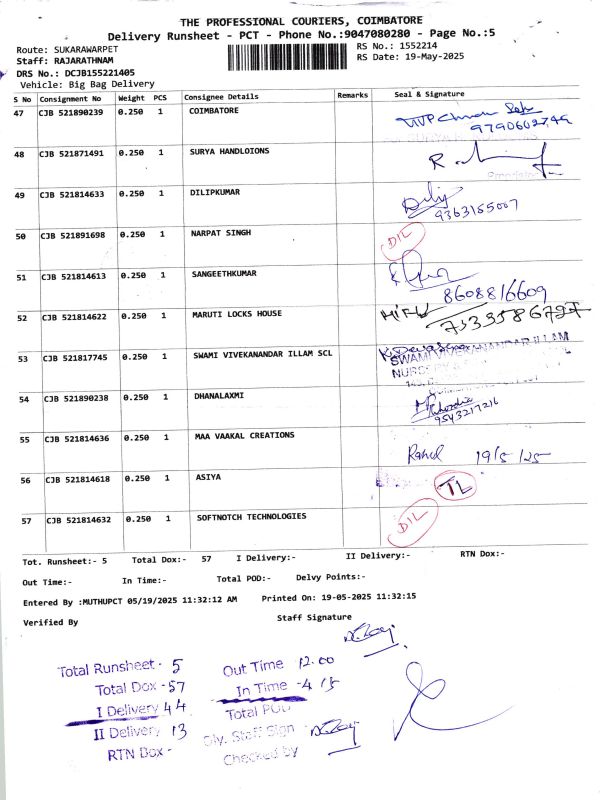 THE PROFESSIONAL COURIERS, COIMBATORE
Delivery Runsheet - PCT - Phone No.:9047080280 - Page No.:5
Route: SUKARAWARPET
Staff: RAJARATHNAM
RS No.: 1552214
RS Date: 19-May-2025
DRS No.: DCJB155221405
Vehicle: Big Bag Delivery
S No Consignment No Weight PCS Consignee Details Remarks Seal & Signature
47 CJB 521890239 0.250 1 COIMBATORE
9790602749
48 CJB 521871491 0.250 1 SURYA HANDLOIONS
49 CJB 521814633 0.250 1 DILIPKUMAR
9363155007
50 CJB 521891698 0.250 1 NARPAT SINGH DIL
51 CJB 521814613 0.250 1 SANGEETHKUMAR
8608816609
52 CJB 521814622 0.250 1 MARUTI LOCKS HOUSE
53 CJB 521817745 0.250 1 SWAMI VIVEKANANDAR ILLAM SCL
SWAMI VIVEKANANDAR ILLAM
54 CJB 521890238 0.250 1 DHANALAXMI
9543217216
55 CJB 521814636 0.250 1 MAA VAAKAL CREATIONS
Rahul 19/5/25
56 CJB 521814618 0.250 1 ASIYA TL
57 CJB 521814632 0.250 1 SOFTNOTCH TECHNOLOGIES DIL
Tot. Runsheet:- 5 Total Dox:- 57 I Delivery:- II Delivery:- RTN Dox:-
Out Time:- In Time:- Total POD:- Delvy Points:-
Entered By :MUTHUPCT 05/19/2025 11:32:12 AM Printed On: 19-05-2025 11:32:15
Verified By Staff Signature
Total Runsheet - 5
Total Dox -57
I Delivery 44
II Delivery 13
RTN Dox -
Out Time 12.00
In Time -4 15
Total POD
Dly. Staff Sign
Checked by